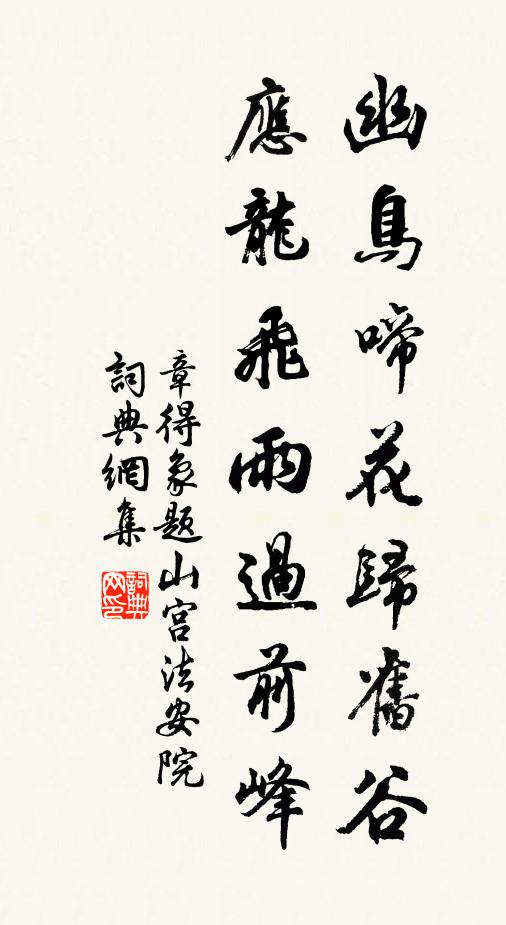 幽鳥啼花歸舊谷
應龍飛雨過前峰
章得象題山宫法安院
詞典網集
詞典
网印